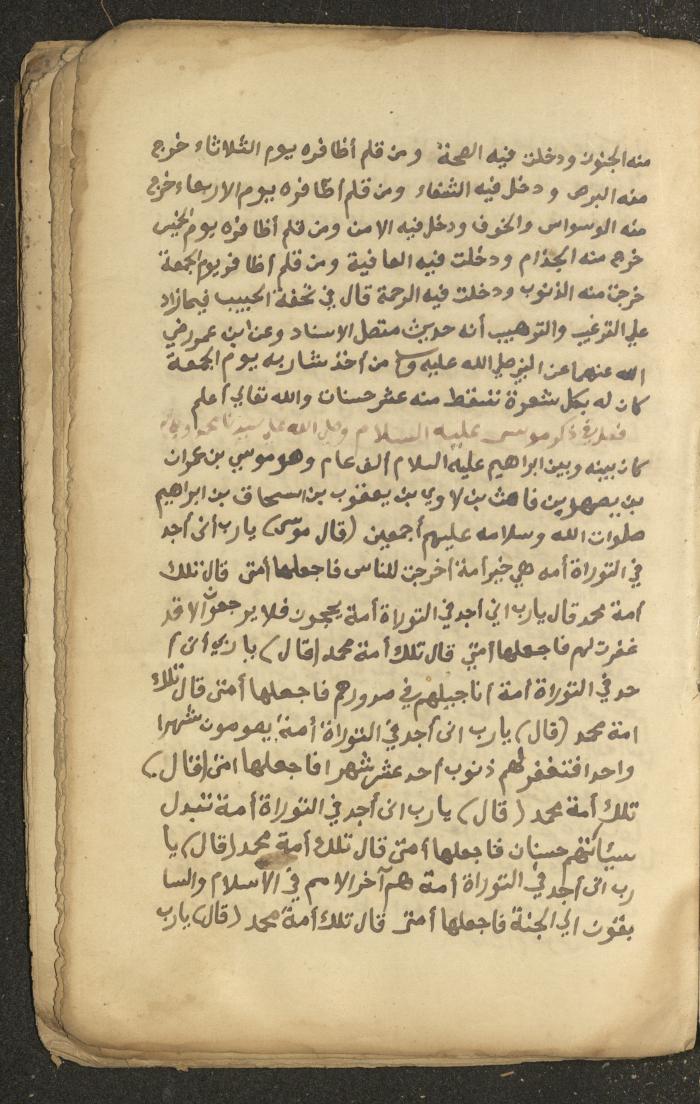 منه الجنون ودخلت فيه الصحة ومن قلم أظافره يوم الثلاثاء خرج
منه البرص ودخل فيه الشفاء ومن قلم أظافره يوم الاربعاء خرج
منه الوسواس والخوف ودخل فيه الامن ومن قلم أظافره يوم الخميس
خرج منه الجذام ودخلت فيه العافية ومن قلم أظافر يوم الجمعة
خرجت منه الذنوب ودخلت فيه الرحمة قال في تحفة الحبيب فيما زاد
علي الترغيب والترهيب أنه حديث متصل الاسناد وعن ابن عمر رضي
الله عنهما عن النبي صلي الله عليه وسلم من أخذ شاربه يوم الجمعة
كان له بكل شعرة تسقط منه عشر حسنات والله تعالي أعلم
فصل في ذكر موسى عليه السلام وصلى الله على سيدنا محمد
كان بينه وبين ابراهيم عليه السلام ألف عام وهو موسي بن عمران
بن يصهر بن قاهث بن لاوي بن يعقوب بن اسحاق بن ابراهيم
صلوات الله وسلامه عليهم أجمعين (قال موسى) يارب أنى أجد
في التوراة أمه هي خير أمة أخرجت للناس فاجعلها أمتى قال تلك
أمة محمد قال يارب اني أجد في التوراة أمة يحجون فلا يرجعون الا قد
غفرت لهم فاجعلها أمتي قال تلك أمة محمد (قال) يا ربي أنى أ
جد في التوراة أمة أناجيلهم في صدورهم فاجعلها أمتى قال تلك
امة محمد (قال) يارب انى أجد في التوراة أمة يصومون شهرا
واحد افتغفر لهم ذنوب أحد عشر شهرا فاجعلها امتى (قال)
تلك أمة محمد (قال) يارب انى أجد في التوراة أمة تتبدل
سيئاتهم حسنات فاجعلها أمتى قال تلك أمة محمد (قال) يا
رب انى أجد في التوراة أمة هم آخر الامم في الأسلام والسا
بقون الي الجنة فاجعلها أمتى قال تلك أمة محمد (قال) يارب